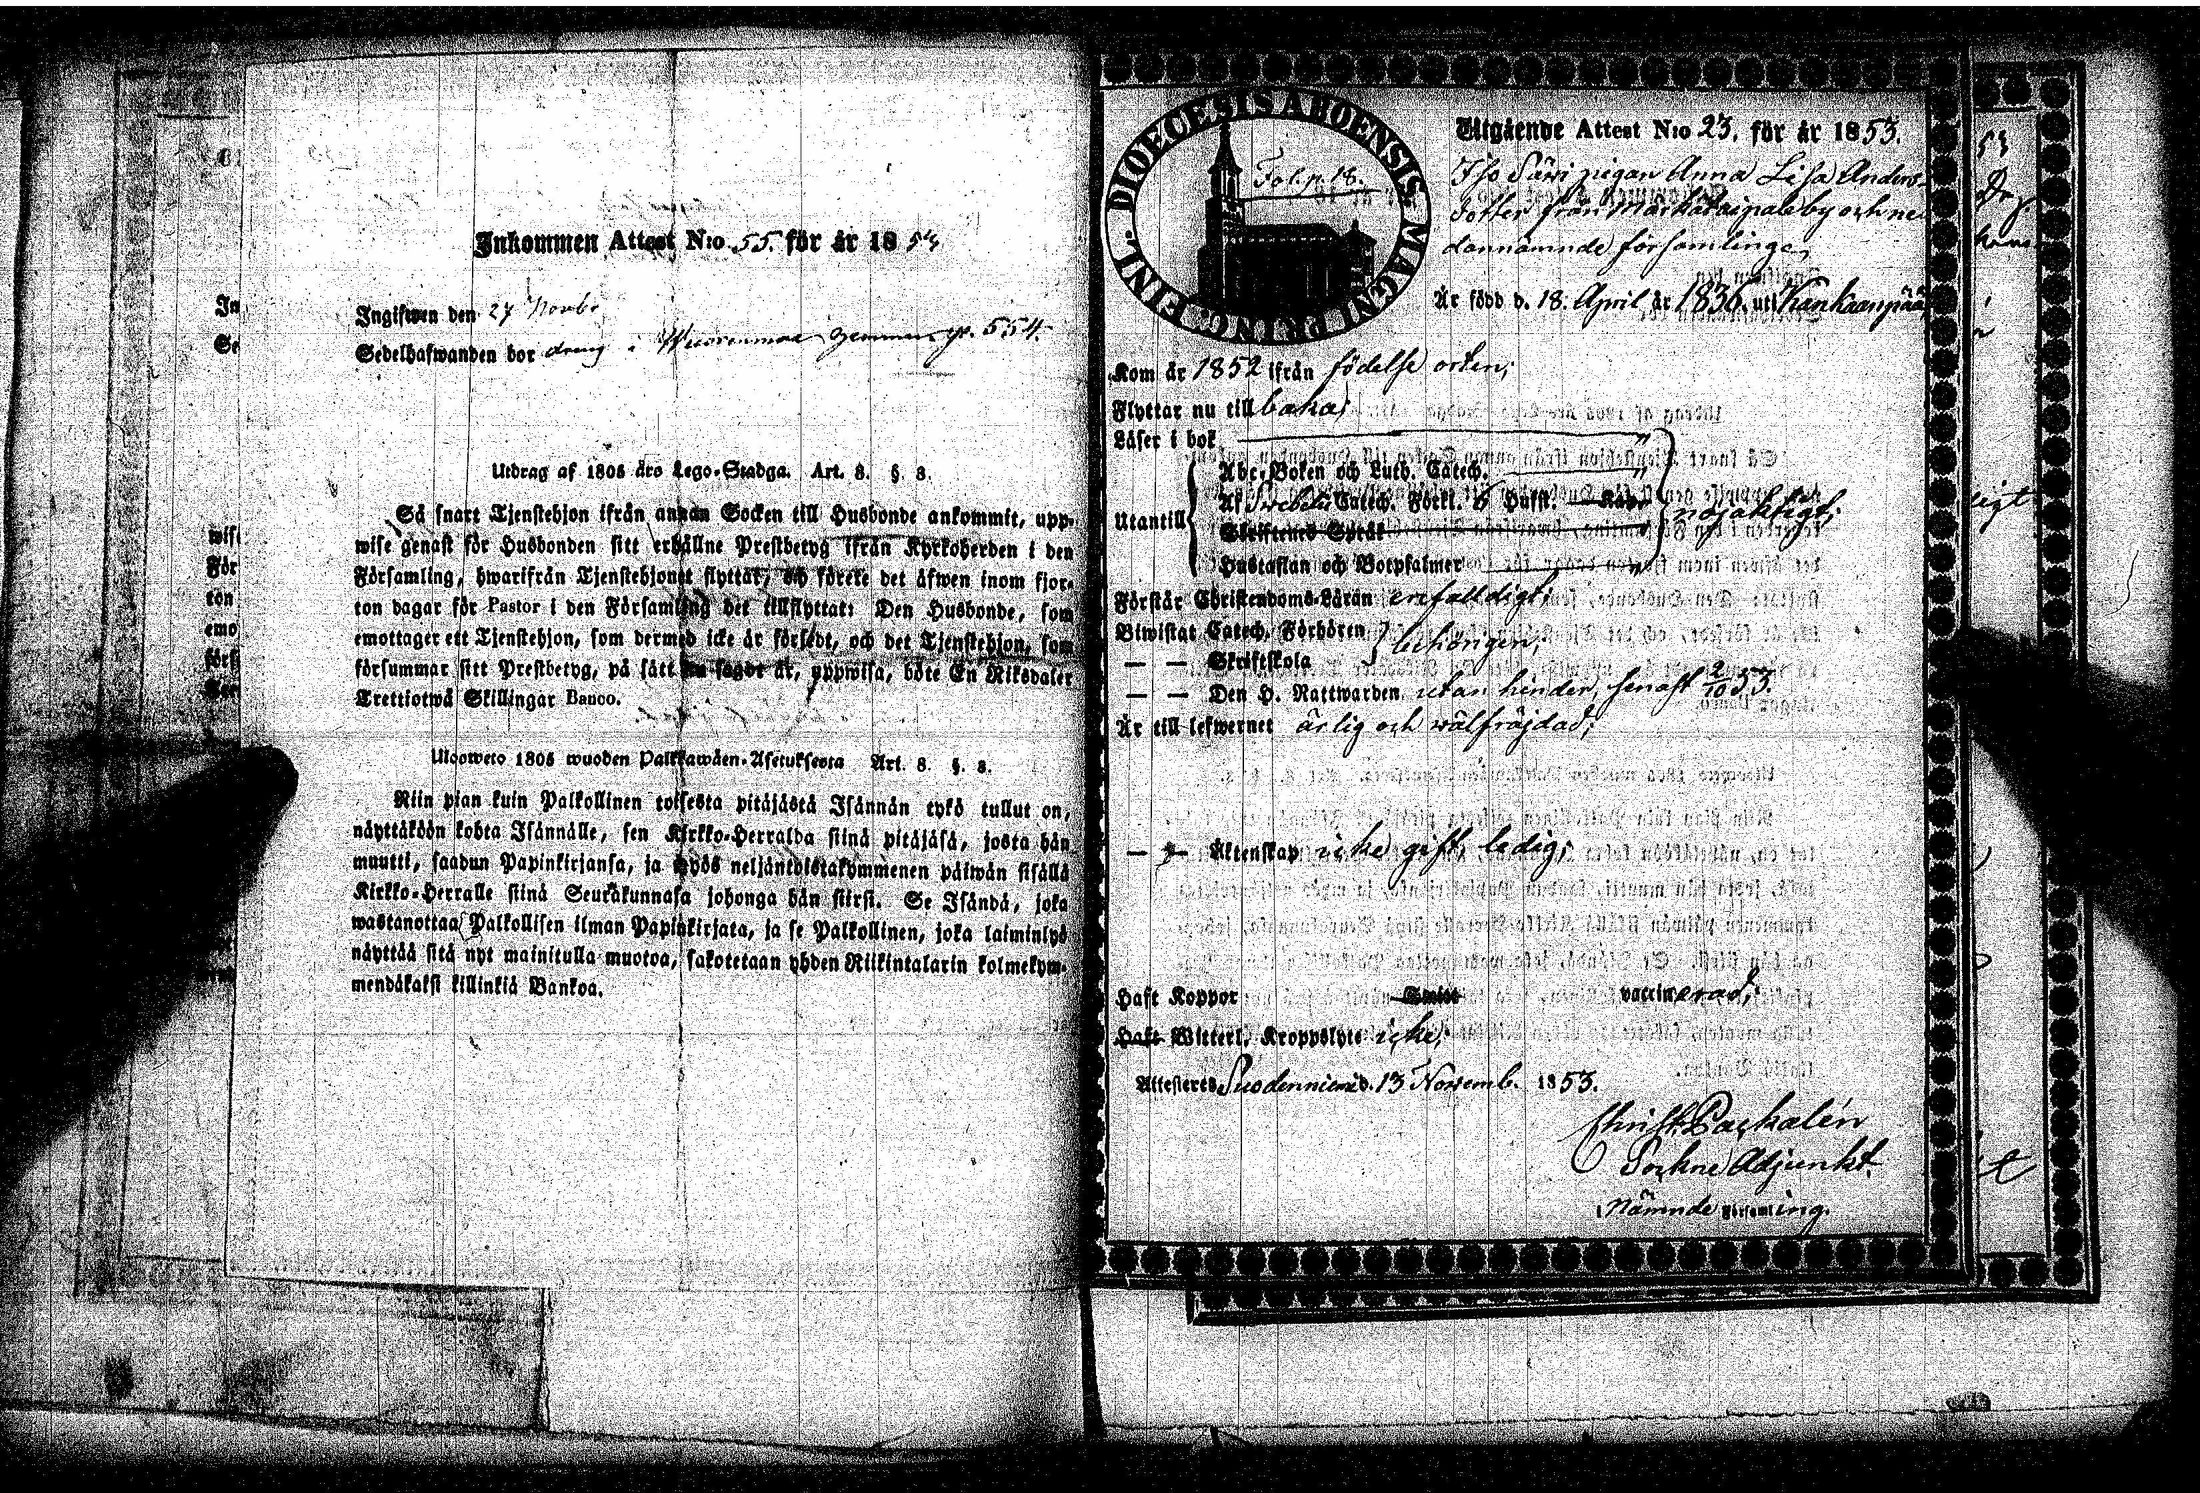 Inkommen Attest N:o 55. för år 1854
Ingifwen den 27 Novbr
Sedelhafwanden bor dräng i gp. 554.
Utdrag af 1805 års Lego-Stadga. Art. 8. §. 3.
Så snart Tjenstehjon ifrån annan Socken till Husbonde ankommit, upp-
wise genast för Husbonden sitt erhållne Prestbetyg ifrån Kyrkoherden i den
Församling, hwarifrån Tjenstehjonet flyttat, och förete det äfwen inom fjor-
ton dagar för Pastor i den Församling det tillflyttat: Den Husbonde, som
emottager ett Tjenstehjon, som dermed icke är försedt, och det Tjenstehjon, som
försummar sitt Prestbetyg, på sätt nu sagdt är, uppwisa, böte En Riksdaler
Trettiotwå Skillingar Banco.
Ulosweto 1805 wuoden Palkkawäen-Asetuksesta Art. 8. §. 3.
Niin pian kuin Palkollinen toisesta pitäjästä Isännän tykö tullut on,
näyttäköön kohta Isännälle, sen Kirkko-Herralda siinä pitäjäsä, josta hän
muutti, saadun Papinkirjansa, ja myös neljäntoistakymmenen päiwän sisällä
Kirkko-Herralle siinä Seurakunnasa johonga hän siirsi. Se Isändä, joka
wastanottaa Palkollisen ilman Papinkirjata, ja se Palkollinen, joka laiminlyö
näyttää sitä nyt mainitulla muotoa, sakotetaan yhden Riikintalarin kolmekym-
mendäkaksi killinkiä Bankoa.
FINL. DIOECESIS ABOENSIS MAGNI PRINC.
Fol. p. 18.
Utgående Attest N:o 23. för år 1853.
Iso Säri pigan Anna Lisa Anders-
dotter från by och ne-
dannämnde församlinge,
Är född d. 18. April år 1836. uti Kankaanpää
Kom år 1852 ifrån födelse orten;
Flyttar nu tillbaka;
Läser i bok "
Utantill
Abc-Boken och Luth. Catech. "
Af Swebelii Catech. Förkl. 6 Hufst. Kap.
Skriftenes Språk
Hustaflan och Botpsalmer "
nöjaktigt;
Förstår Christendoms-Läran enfalldigt;
Biwistat Catech. Förhören
— — Skriftskola
behörigen;
— — Den H. Nattwarden utan hinder, senast 2/10 53.
Är till lefwernet ärlig och wälfräjdad;
— — Äktenskap icke gift, ledig;
Haft Koppor vaccinerad;
Haft Witterl. Kroppslyte icke;
Attesteras Suodenniemi d. 13 Novemb. 1853.
Christ. Packalén
Sockne Adjunkt
i Nämnde Församling.